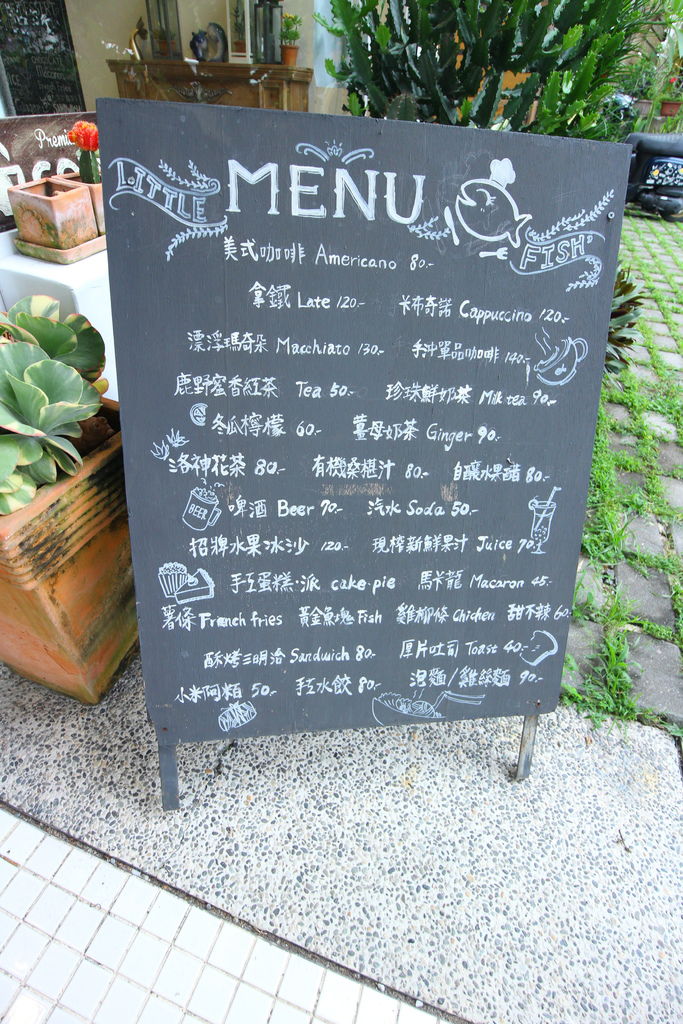 Premi
LITTLE MENU FISH'
美式咖啡 Americano 80.-
拿鐵 Late 120.- 卡布奇諾 Cappuccino 120.-
漂浮瑪奇朵 Macchiato 130.- 手沖單品咖啡 140.-
鹿野蜜香紅茶 Tea 50.- 珍珠鮮奶茶 Milk tea 90.-
冬瓜檸檬 60.- 薑母奶茶 Ginger 90.-
洛神花茶 80.- 有機桑椹汁 80.- 自釀水果醋 80.-
BEER 啤酒 Beer 70.- 汽水 Soda 50.-
招牌水果冰沙 120.- 現榨新鮮果汁 Juice 70.-
手工蛋糕·派 cake·pie 馬卡龍 Macaron 45.-
薯條 French fries 黃金魚塊 Fish 雞柳條 Chicken 甜不辣 60.
酥烤三明治 Sandwich 80.- 厚片吐司 Toast 40.-
小米阿粨 50.- 手工水餃 80.- 泡麵/雞絲麵 90.-